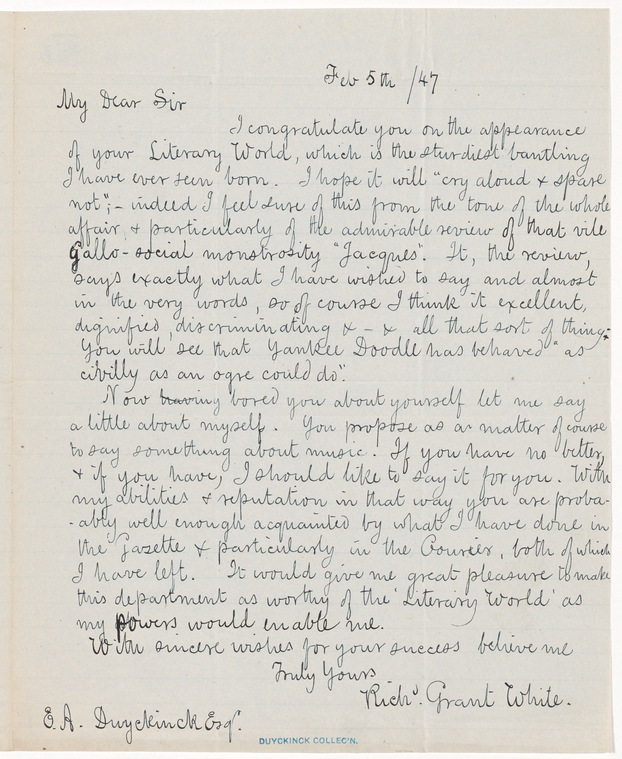 Feb 5th /47
My Dear Sir
I congratulate you on the appearance
of your Literary World, which is the sturdiest bantling
I have ever seen born. I hope it will "cry aloud & spare
not"; - indeed I feel sure of this from the tone of the whole
affair, & particularly of the admirable review of that vile
Gallo-social monstrosity "Jacques". It, the review,
says exactly what I have wished to say and almost
in the very words, so of course I think it excellent,
dignified, discriminating & - & all that sort of thing.
You will see that Yankee Doodle has behaved "as
civilly as an ogre could do".
Now having bored you about yourself let me say
a little about myself. You propose as a matter of course
to say something about music. If you have no better,
& if you have, I should like to say it for you. With
my abilities & reputation in that way you are proba-
-ably well enough acquainted by what I have done in
the Gazette & particularly in the Courier, both of which
I have left. It would give me great pleasure to make
this department as worthy of the 'Literary World' as
my powers would enable me.
With sincere wishes for your success believe me
Truly Yours
Richd. Grant White.
E. A. Duyckinck Esqr.
DUYCKINCK COLLEC'N.